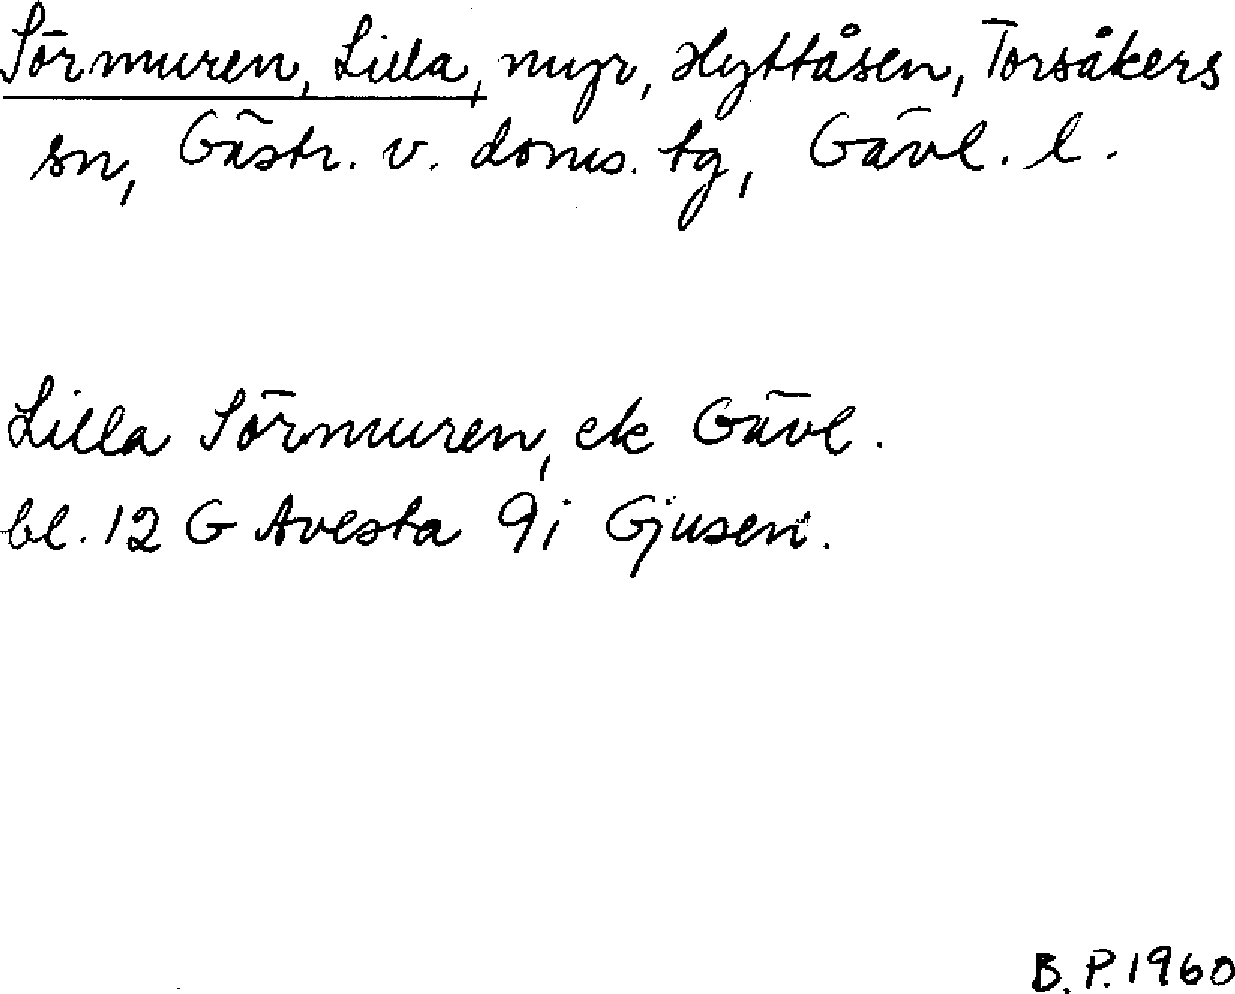 Sörmuren, Lilla, myr, Hyttåsen, Torsåkers
sn, Gästr. v. doms. tg, Gävl. l.
Lilla Sörmuren, ek Gävl.
bl. 12 G Avesta 9i Gjusen.
B. P. 1960